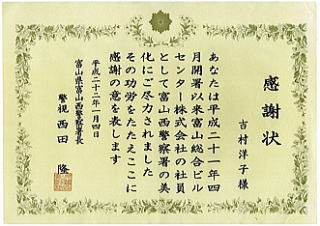 感謝状
吉村洋子様
あなたは平成二十一年四
月開署以来富山総合ビル
センター株式会社の社員
として富山西警察署の美
化にご尽力されました
その功労をたたえここに
感謝の意を表します
平成二十二年一月四日
富山県富山西警察署長
警視 西田 隆